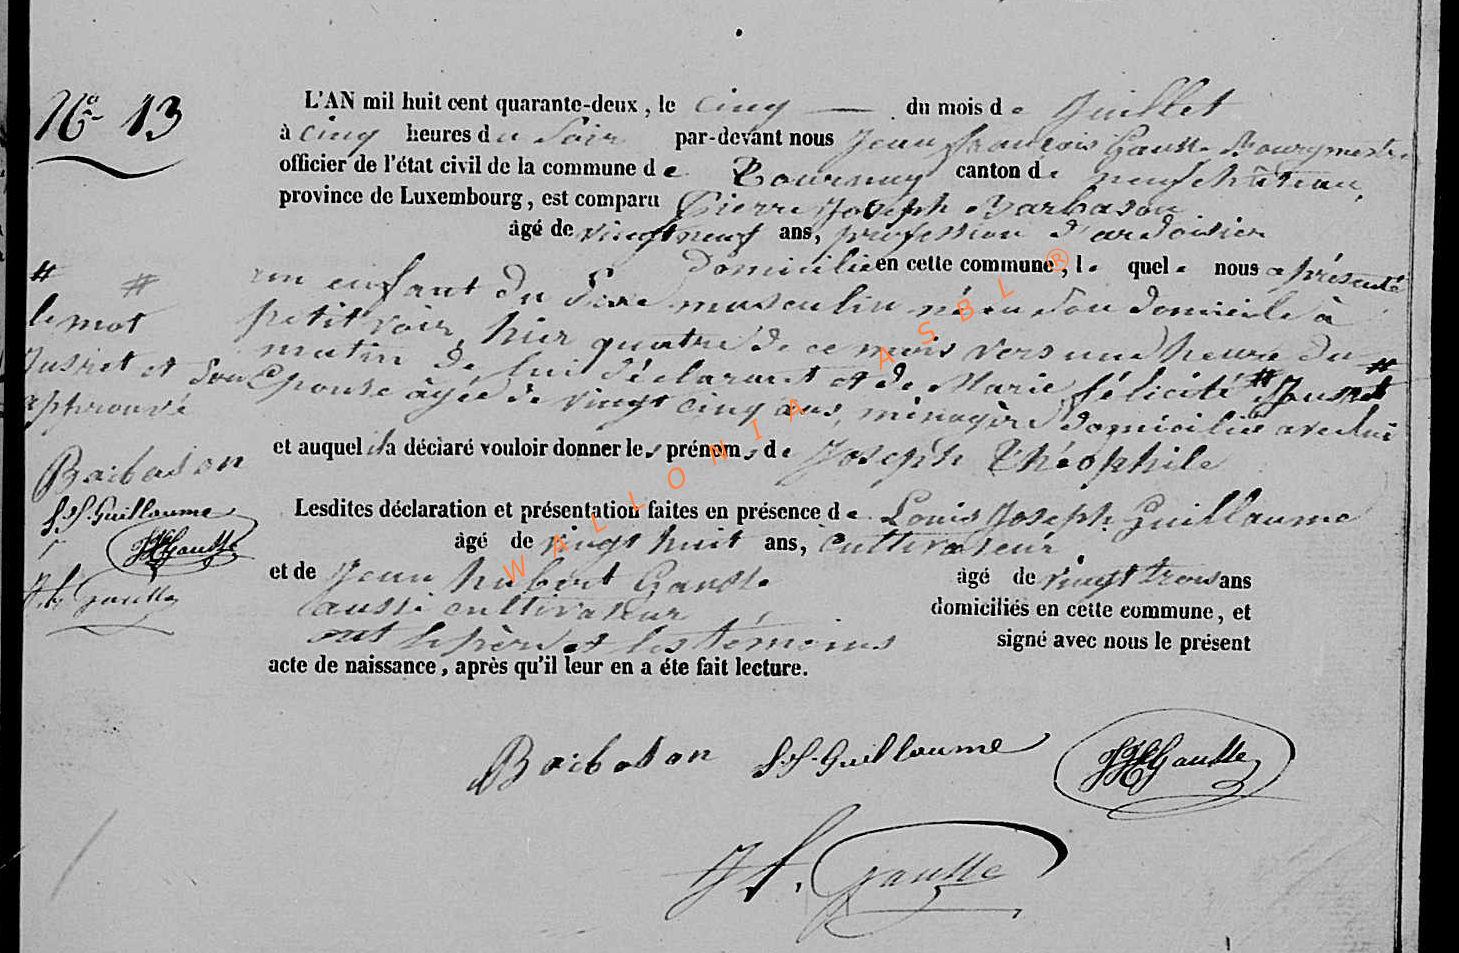 No 13
L'AN mil huit cent quarante-deux, le cinq du mois de Juillet
à cinq heures du soir par-devant nous Jean françois Gausse Bourgmestre
officier de l'état civil de la commune de Tournay canton de neufchâteau,
province de Luxembourg, est comparu Pierre Joseph Barbason
âgé de vingt neuf ans, profession d'ardoisier
domicilié en cette commune, le quel nous a présenté
un enfant du sexe masculin né en son domicile à
petitvoir, hier quatre de ce mois vers une heure du
matin de lui déclarant et de Marie félicité # #
épouse âgée de vingt cinq ans, ménagère domiciliée avec lui
et auquel il a déclaré vouloir donner les prénoms de Joseph Théophile
Lesdites déclaration et présentation faites en présence de Louis Joseph Guillaume
âgé de vingt huit ans, cultivateur
et de Jean hubert Gausse âgé de vingt trois ans
aussi cultivateur domiciliés en cette commune, et
ont le père et les témoins signé avec nous le présent
acte de naissance, après qu'il leur en a éte fait lecture.
# #
le mot
et son
approuvé
Barbason
Guillaume
Gausse
Gausse
Barbason Guillaume Gausse
Gausse
WALLONIA ASBL ®